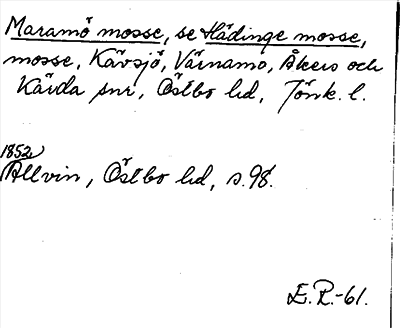 Maramö mosse, se Hädinge mosse,
mosse, Kävsjö, Värnamo, Åkers och
Kärda snr, Östbo hd, Jönk. l.
1852
Allvin, Östbo hd, s. 98.
E.P.-61.